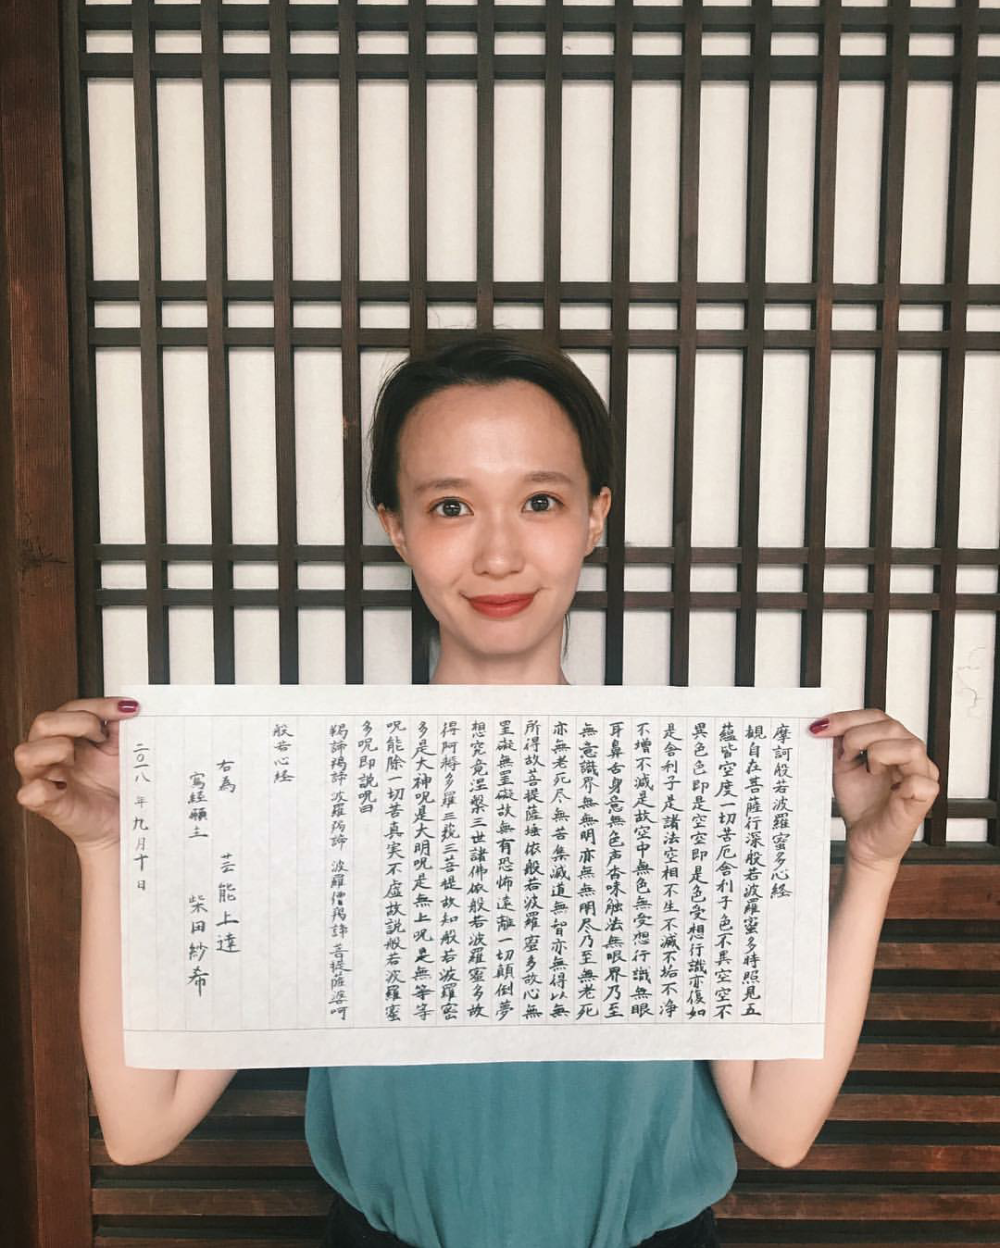 摩訶般若波羅蜜多心経
観自在菩薩行深般若波羅蜜多時照見五
蘊皆空度一切苦厄舎利子色不異空空不
異色色即是空空即是色受想行識亦復如
是舎利子是諸法空相不生不滅不垢不浄
不増不減是故空中無色無受想行識無眼
耳鼻舌身意無色声香味触法無眼界乃至
無意識界無無明亦無無明尽乃至無老死
亦無老死尽無苦集滅道無智亦無得以無
所得故菩提薩埵依般若波羅蜜多故心無
罣礙無罣礙故無有恐怖遠離一切顛倒夢
想究竟涅槃三世諸佛依般若波羅蜜多故
得阿耨多羅三藐三菩提故知般若波羅蜜
多是大神呪是大明呪是無上呪是無等等
呪能除一切苦真実不虚故説般若波羅蜜
多呪即説呪曰
羯諦羯諦 波羅羯諦 波羅僧羯諦 菩提薩婆呵
般若心経
右為 芸能上達
写経願主 柴田紗希
二〇一八年九月十日